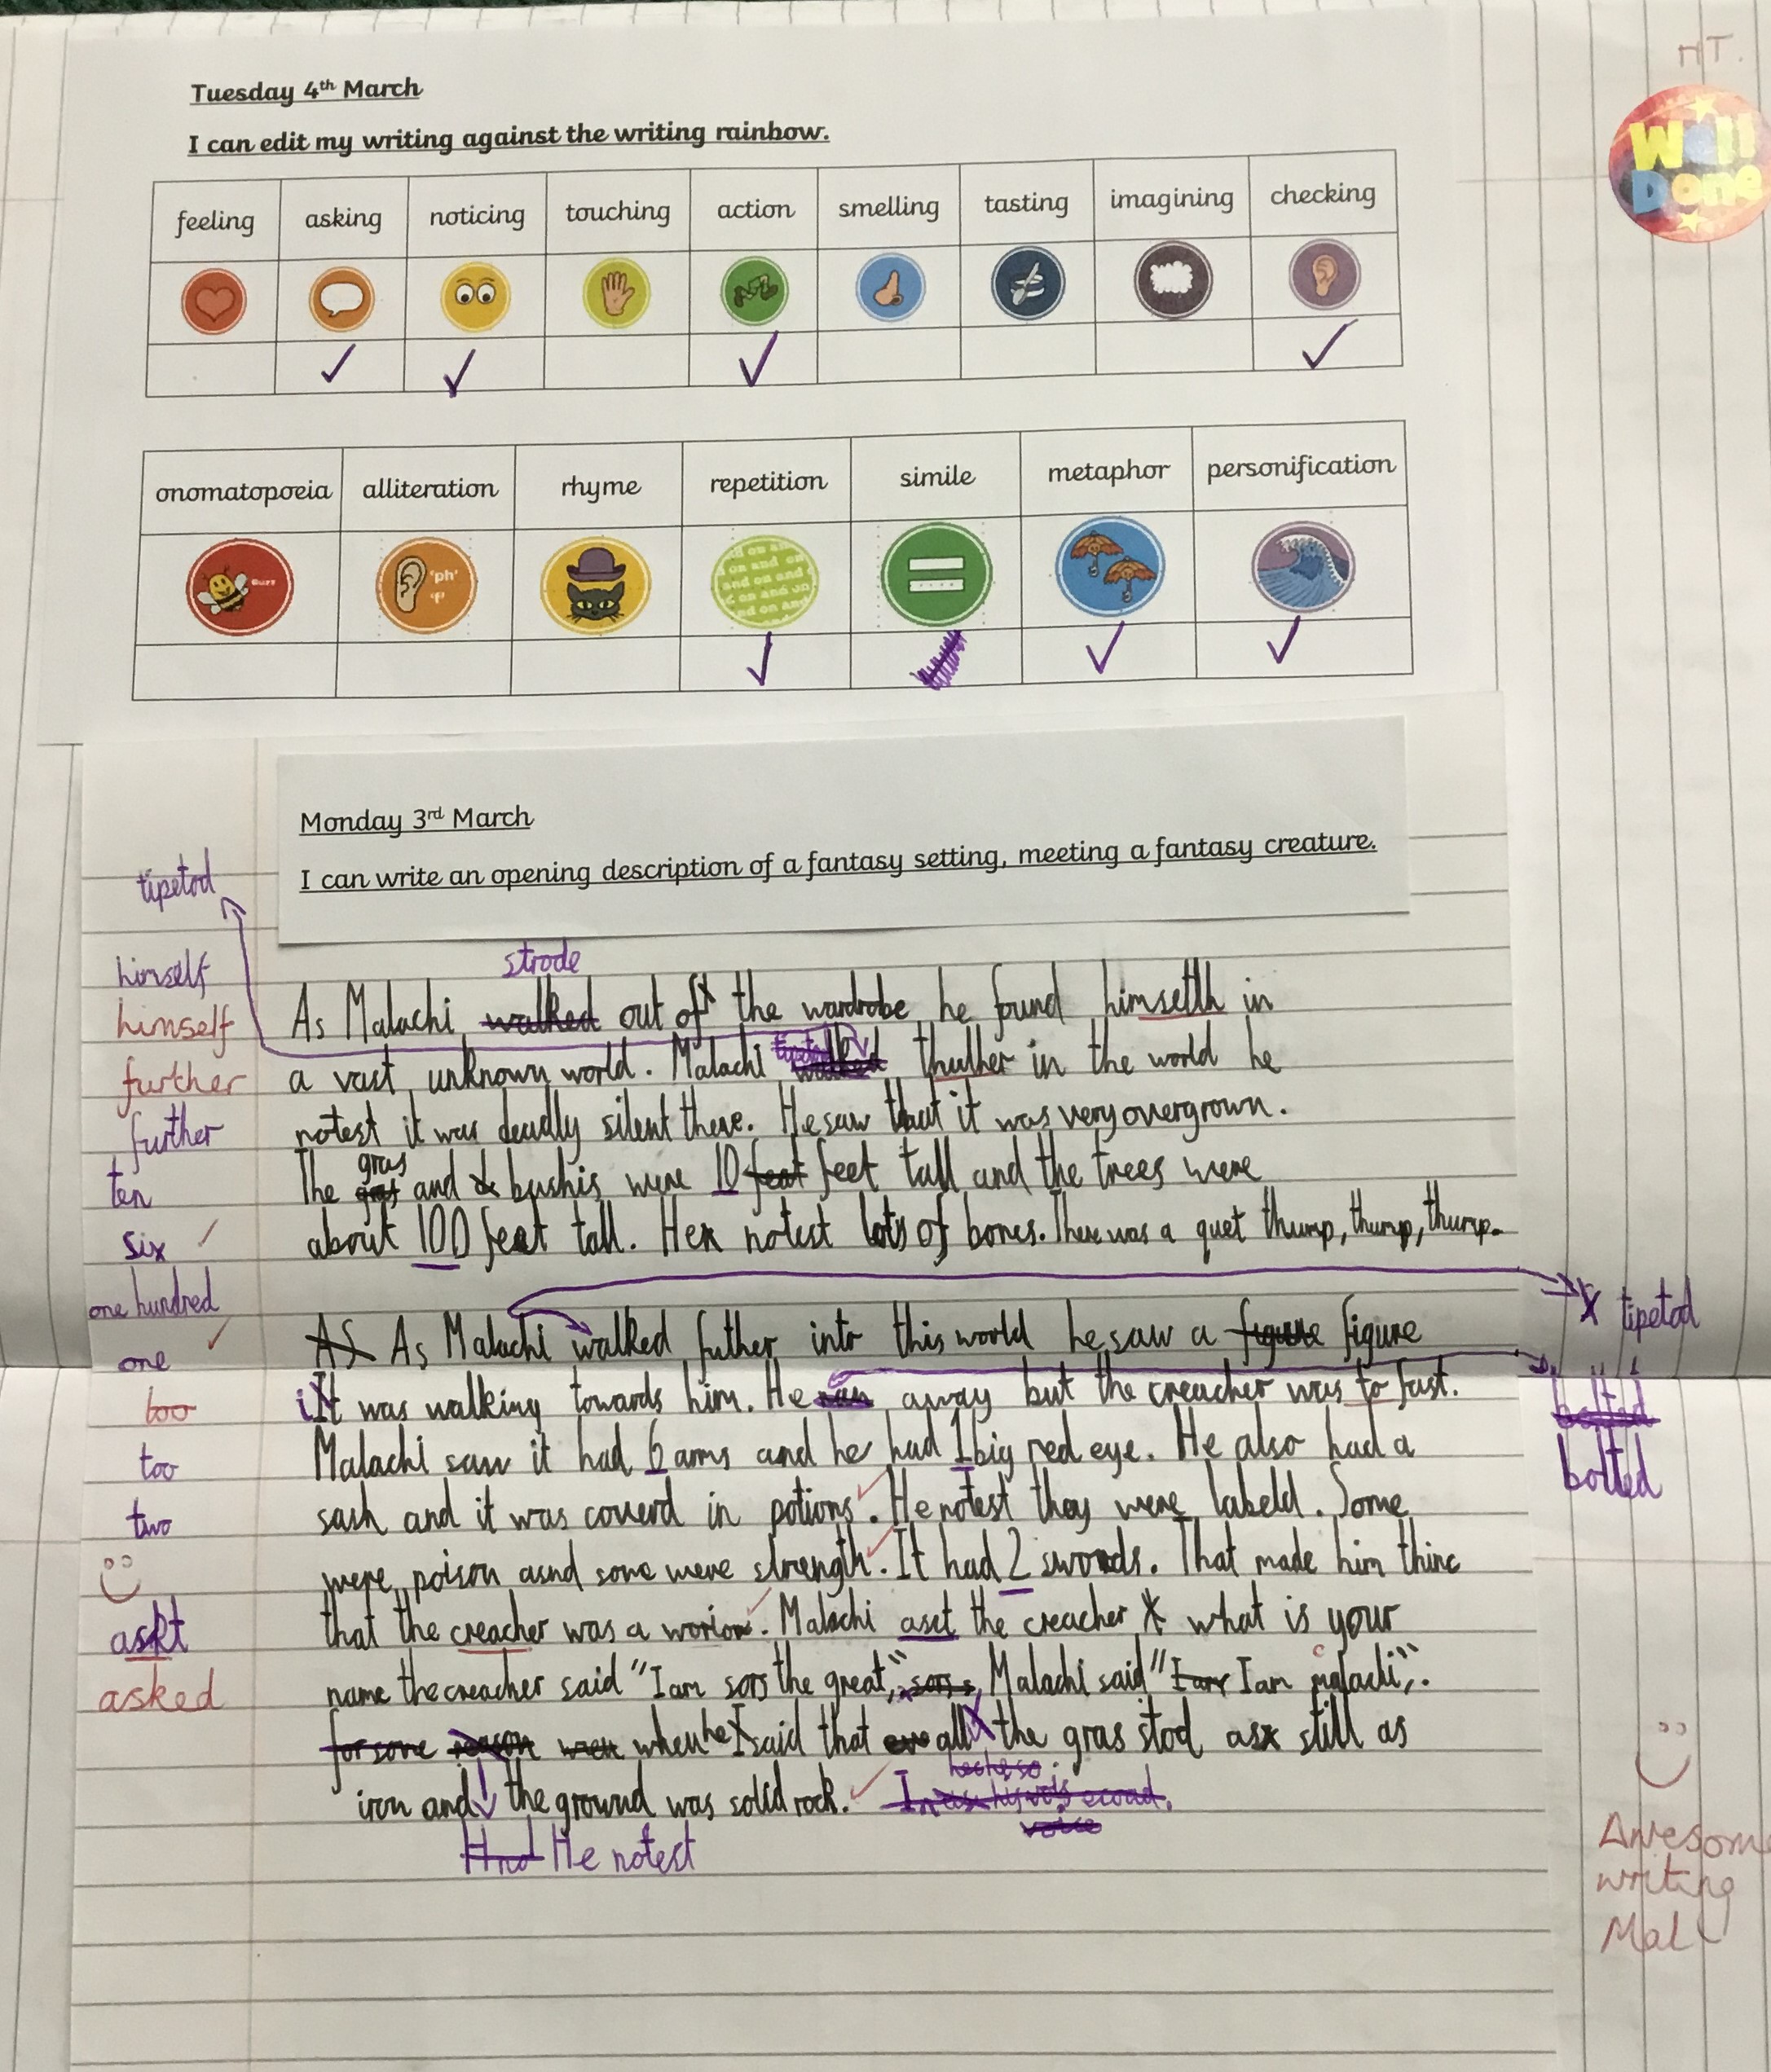 MT.
Well Done
Tuesday 4th March
I can edit my writing against the writing rainbow.
feeling asking noticing touching action smelling tasting imagining checking
onomatopoeia alliteration rhyme repetition simile metaphor personification
Buzz
'ph'
'f'
Monday 3rd March
I can write an opening description of a fantasy setting, meeting a fantasy creature.
tipetod
himself
himself
further
further
ten
six
one hundred
one
too
too
two
askt
asked
strode
As Malachi walked out of the wardrobe he found himselth in
a vast unknown world. Malachi walked thuther in the world he
notest it was deadly silent there. He saw that it was very overgrown.
gras
The and bushis were 10 feat feet tall and the trees were
about 100 feet tall. He notest lots of bones. There was a quet thump, thump, thump.
AS As Malachi walked futher into this world he saw a figure figure
it was walking towards him. He ran away but the creacher was to fast.
Malachi saw it had 6 arms and he had 1 big red eye. He also had a
sash and it was coverd in potions. He notest they were labeld. Some
were poison and some were strength. It had 2 swords. That made him thinc
that the creacher was a worior. Malachi aset the creacher what is your
name the creacher said "I am sors the great," sors Malachi said "I am I am malachi".
for some reason wen when he said that all the gras stod as still as
iron and the ground was solid rock.
voice
And He notest
tipetod
bolted
bolted
Awesome
writing
Mal